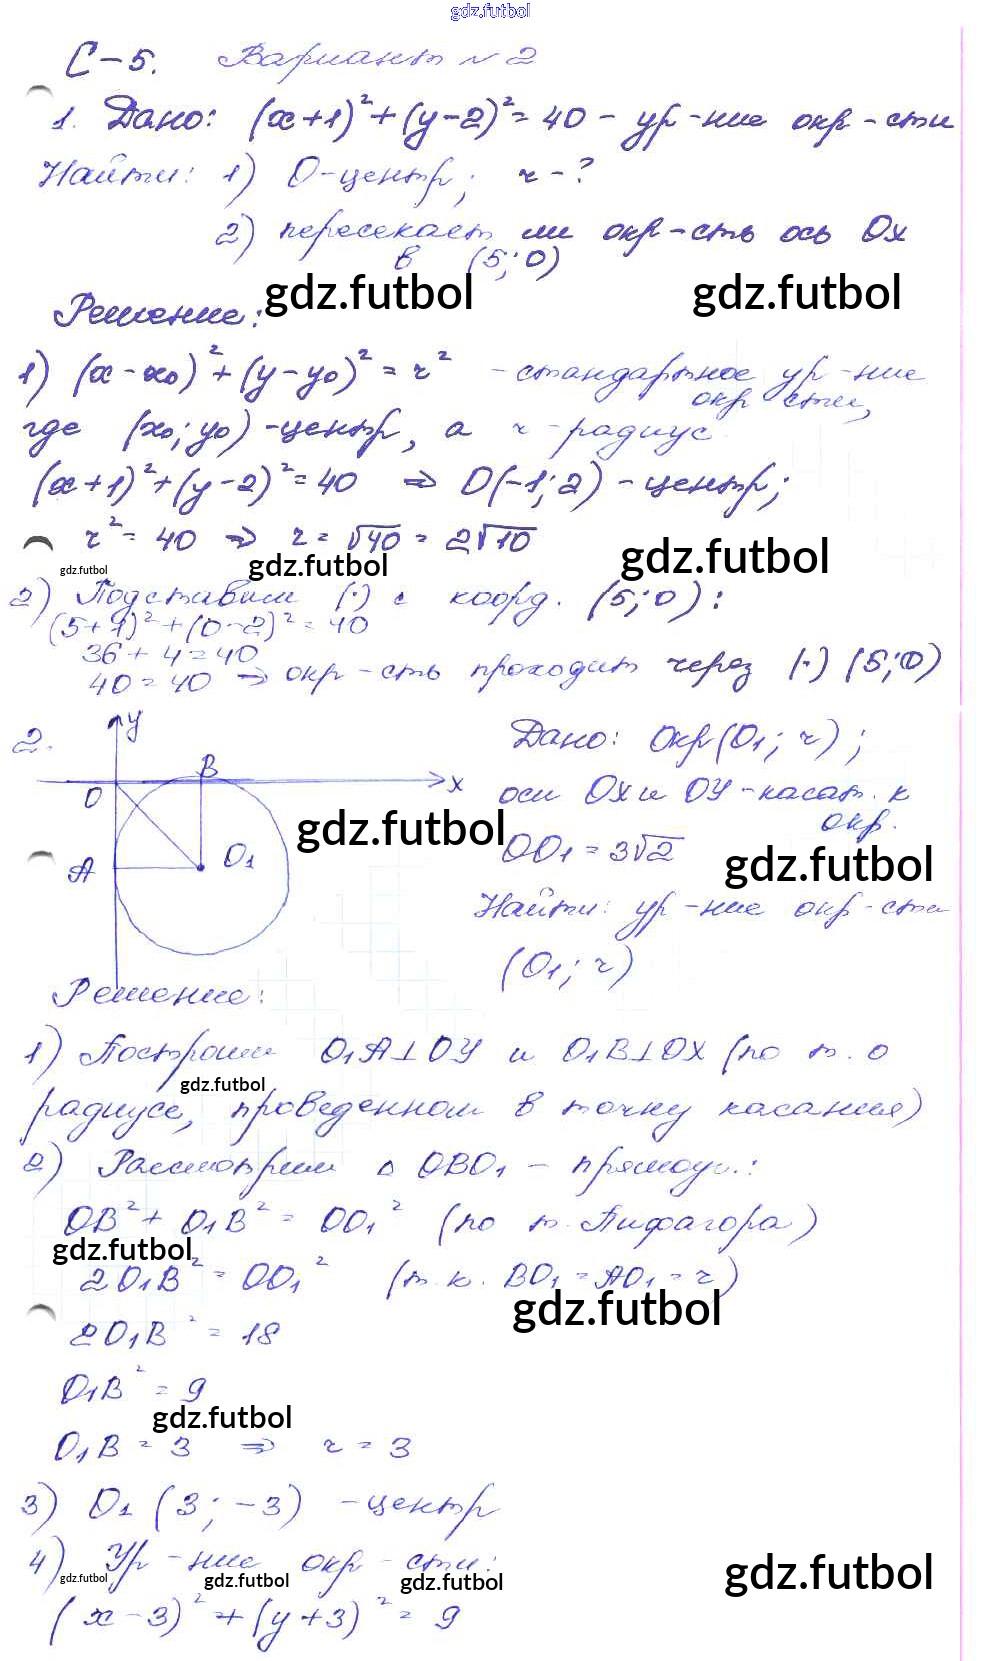 gdz.futbol
С-5. Вариант №2
1. Дано: (x+1)²+(y-2)²=40 - ур-ние окр-сти
Найти: 1) O-центр; r-?
2) пересекает ли окр-сть ось Ox
в (5;0)
gdz.futbol gdz.futbol
Решение:
1) (x-x₀)²+(y-y₀)²=r² -стандартное ур-ние
окр сти,
где (x₀;y₀)-центр, а r-радиус
(x+1)²+(y-2)²=40 ⇒ O(-1;2)-центр;
r²=40 ⇒ r=√40=2√10
gdz.futbol gdz.futbol gdz.futbol
2) Подставим (·) с коорд. (5;0):
(5+1)²+(0-2)²=40
36+4=40
40=40 ⇒ окр-сть проходит через (·) (5;0)
2.
y
B
x
O
A
O₁
Дано: Окр(O₁;r);
оси OX и OY-касат. к
окр.
gdz.futbol
OO₁=3√2
gdz.futbol
Найти: ур-ние окр-сти
(O₁;r)
Решение:
1) Построим O₁A⊥OY и O₁B⊥OX (по т. о
gdz.futbol
радиусе, проведенном в точку касания)
2) Рассмотрим △OBO₁ - прямоуг.:
OB²+O₁B²=OO₁² (по т. Пифагора)
gdz.futbol
2O₁B²=OO₁² (т.к. BO₁=AO₁=r)
gdz.futbol
2O₁B²=18
O₁B²=9
gdz.futbol
O₁B=3 ⇒ r=3
3) O₁(3;-3) -центр
4) Ур-ние окр-сти:
gdz.futbol gdz.futbol gdz.futbol gdz.futbol
(x-3)²+(y+3)²=9